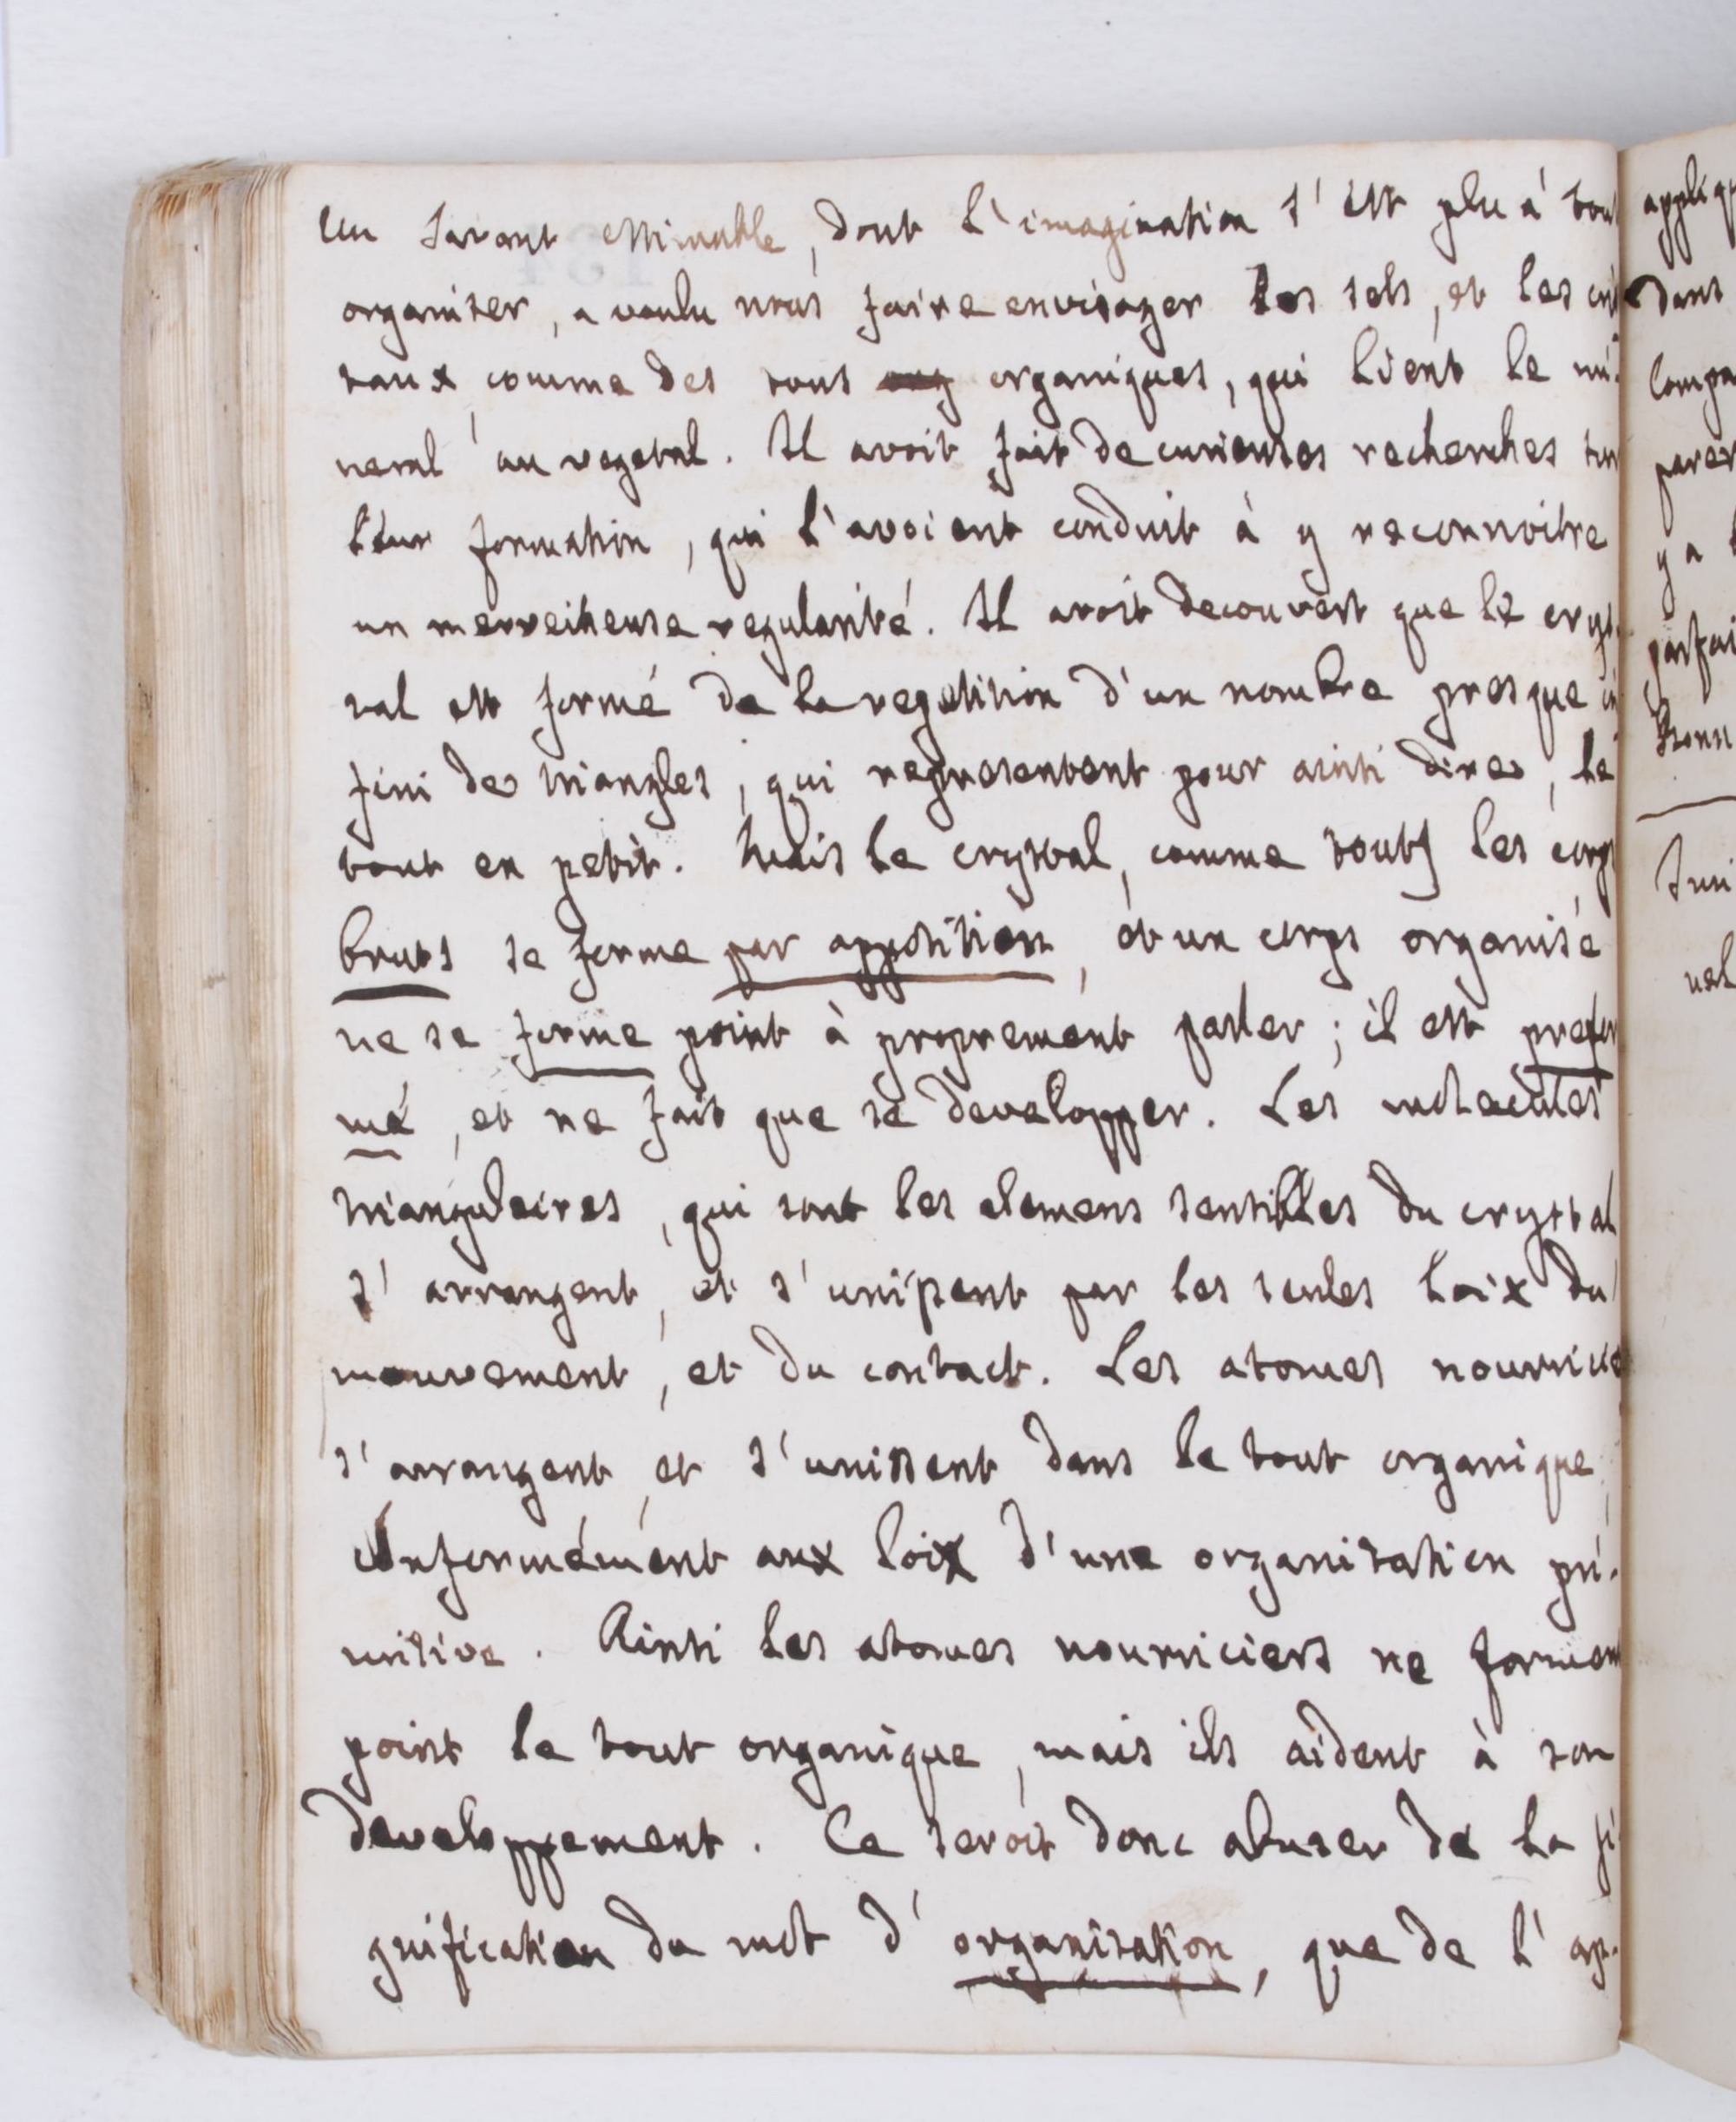 Un savant estimable, dont l'imagination s'est plu à tout
organiser, a voulu nous faire envisager les sels, et les cris
taux comme des touts organiques, qui lient le mi-
neral au vegetal. Il avoit fait de curieuses recherches sur
leur formation, qui l'avoient conduit à y reconnoitre
un merveilleuse regularité. Il avoit decouvert que le crys-
tal est formé de la repetition d'un nombre presque in
fini de triangles, qui representent pour ainsi dire, le
tout en petit. Mais le crystal, comme touts les corps
bruts se forme par apposition, et un corps organisé
ne se forme point à proprement parler; il est prefor
mé, et ne fait que se developper. Les molecules
triangulaires, qui sont les elemens sensibles du crystal
s'arrangent, et s'unissent par les seules loix du
mouvement, et du contact. Les atomes nourricie
s'arrangent, et s'unissent dans le tout organique,
conformément aux loix d'une organisation pri-
mitive. Ainsi les atomes nourriciers ne forment
point le tout organique, mais ils aident à son
developpement. Ce seroit donc abuser de la si
gnification du mot d'organisation, que de l'ap-
appliq
dans
compa
parer
y a
parfai
Bonn